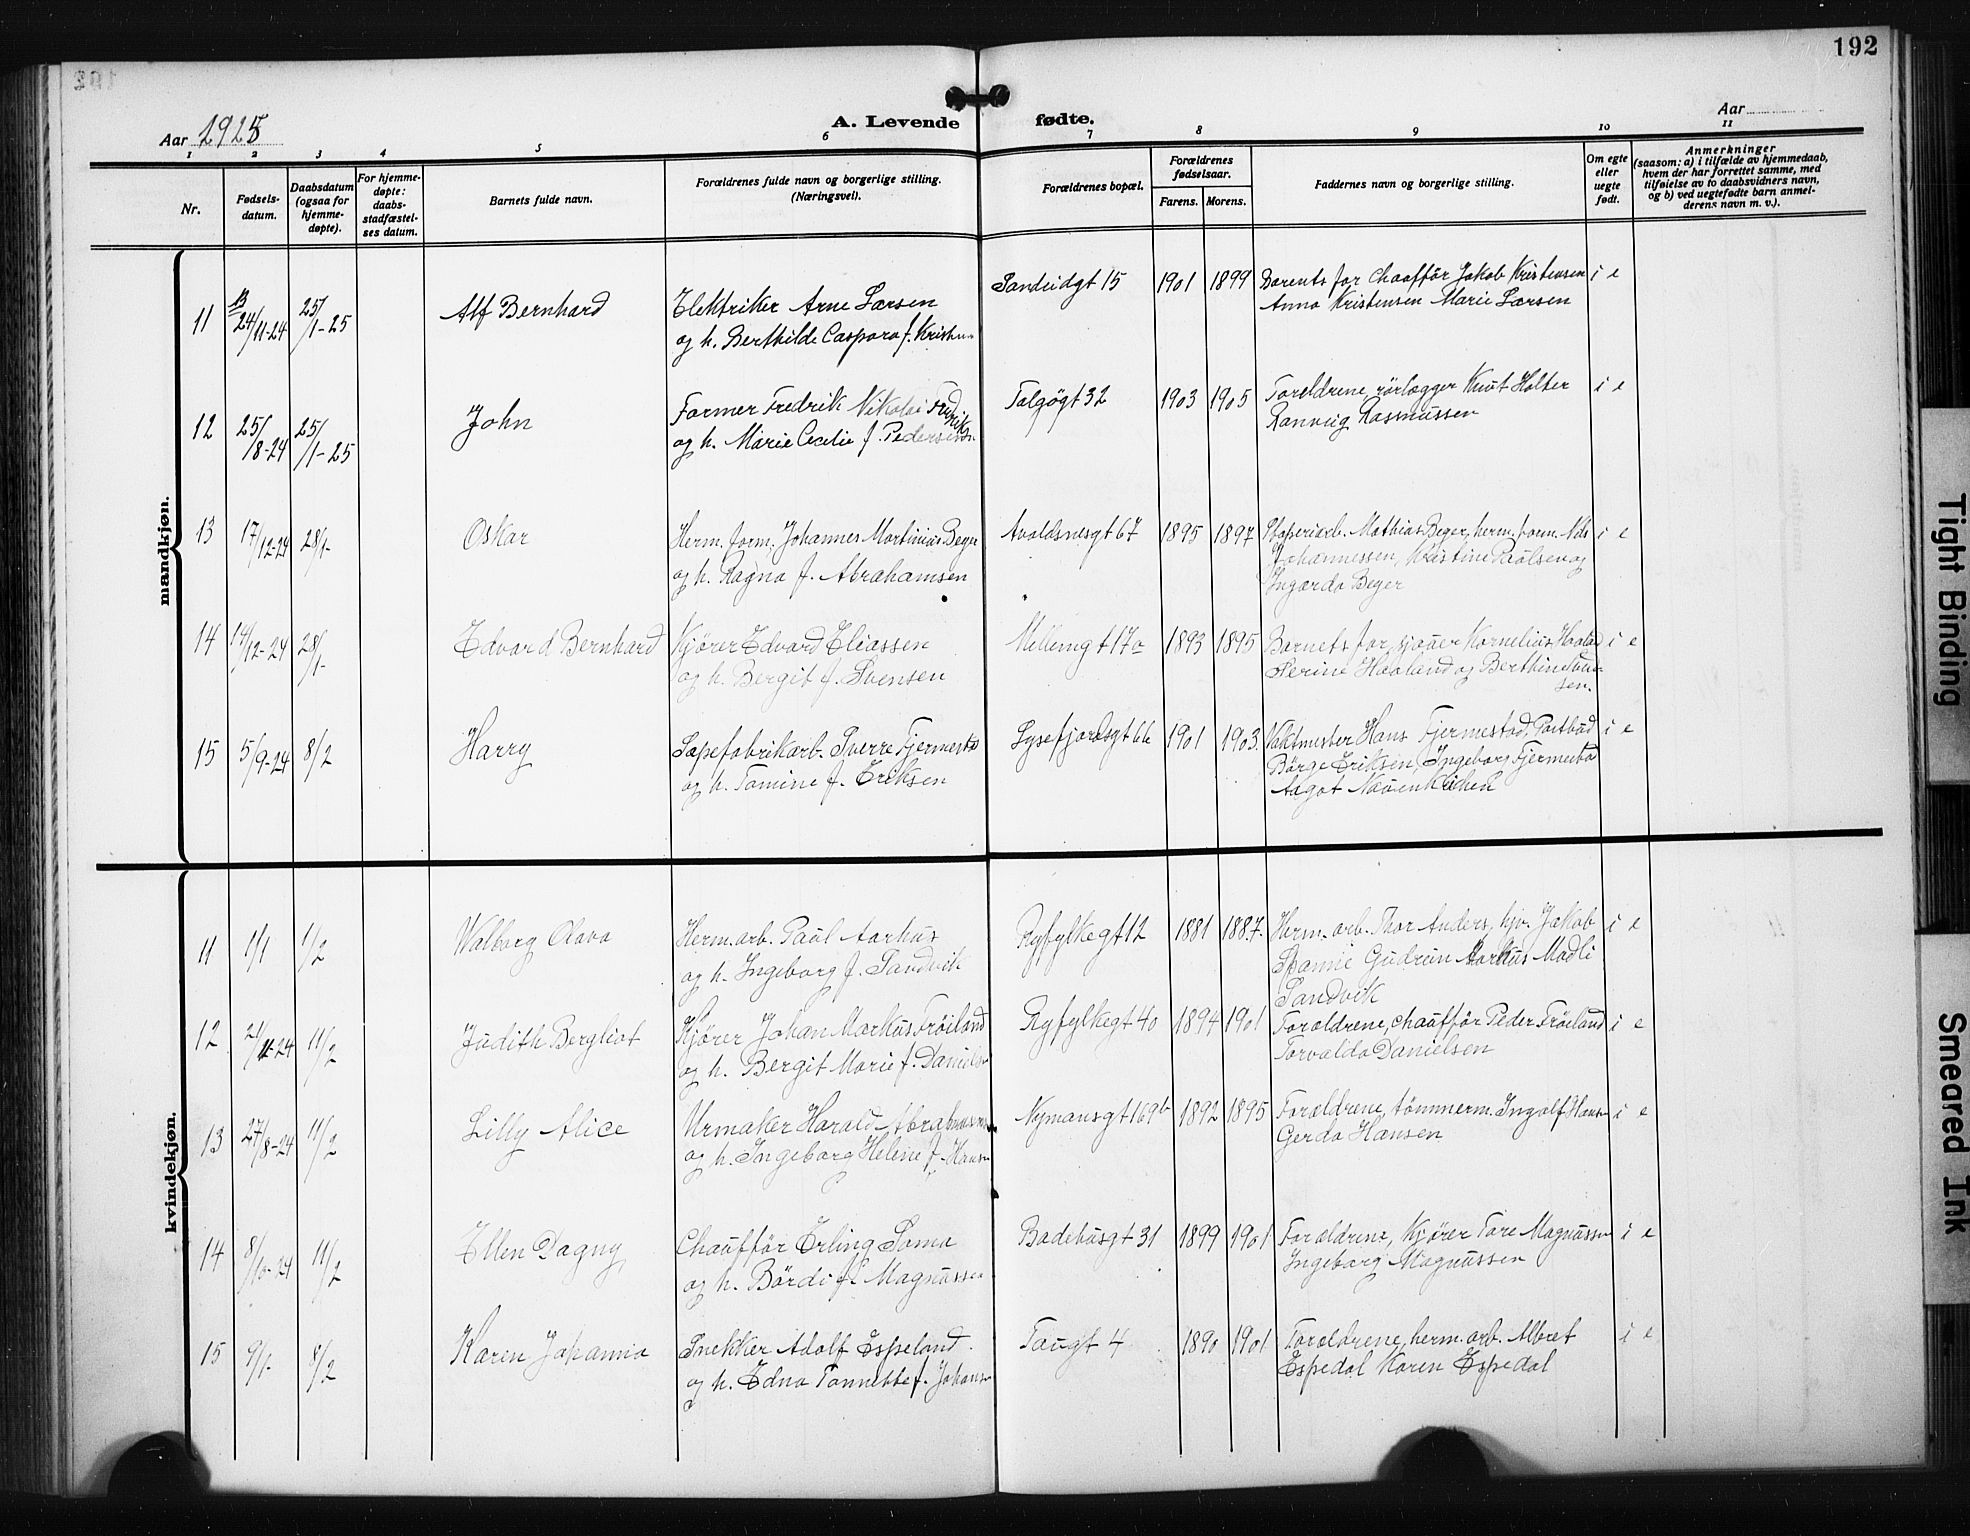 192
Aar 1925
A. Levende fødte.
Aar
1 2 3 4 5 6 7 8 9 10 11
Nr.
Fødsels-
datum.
Daabsdatum
(ogsaa for
hjemme-
døpte).
For hjemme-
døpte:
daabs-
stadfæstel-
ses datum.
Barnets fulde navn.
Forældrenes fulde navn og borgerlige stilling.
(Næringsvei).
Forældrenes bopæl.
Forældrenes
fødselsaar.
Farens. Morens.
Faddernes navn og borgerlige stilling.
Om egte
eller
uegte
født.
Anmerkninger
(saasom: a) i tilfælde av hjemmedaab,
hvem der har forrettet samme, med
tilføielse av to daabsvidners navn,
og b) ved uegtefødte barn anmel-
derens navn m. v.).
mandkjøn.
11 24/11-24 25/1-25 Alf Bernhard
Elektriker Arne Larsen
og h. Berthilde Caspara f. Kristen
Sandeidgt 15 1901 1899
Barents far Chaufför Jakob Kristensen
Anna Kristensen Marie Larsen
i e
12 25/8-24 25/1-25 John
Former Fredrik Nikolai Fredriks
og h. Marie Cecilie f. Pedersen
Talgøgt 32 1903 1905
Foreldrene, rörlægger Knut Holter
Ranveig Rasmussen
i e
13 17/12-24 28/1- Oskar
Herm. form. Johannes Martinius Beger
og h. Ragna f. Abrahamsen
Avaldsnesgt 67 1895 1897
Mathias Beger, herm. form. Nils
Johannessen, Kristine Paulsen og
Ingarda Beger
i e
14 14/12-24 28/1- Edvard Bernhard
Kjører Edvard Eliassen
og h. Bergit f. Svensen
Mellemgt 17a 1893 1895
Barnets far, sjauer Kornelius Haaland
Serine Haaland og Berthine Sven-
sen.
i e
15 5/9-24 8/2 Harry
Sapefabrikarb. Sverre Fjermesta
og h. Tomine f. Eriksen
Lysefjordsgt 1901 1903.
Vaktmester Hans Fjermestad, Postbud
Börge Eriksen, Ingeborg Fjermesta
Aagot
i e
kvindekjøn.
11 1/1 1/2 Walborg Olava
Herm. arb. Paul Aarhus
og h. Ingeborg f. Sandvik
Ryfylkegt 12 1881 1887.
Herm. arb. Thor Anders, hjv. Jakob
Gudrun Aarhus Madli
Sandvik
i e
12 21/11-24 11/2 Judith Bergliot
Kjører Johan Markus Fröiland
og h. Bergit Marie f. Daniels
Ryfylkegt 40 1894 1901
Forældrene, chauffför Peder Fröiland
Torvalda Danielsen
i e
13 27/8-24 11/2 Lilly Alice
Urmaker Harald Abrahamsen
og h. Ingeborg Helene f. Hans
Nymansgt 169b 1892 1895
Forældrene, tömmerm. Ingolf Hans
Gerda Hansen
i e
14 8/10-24 11/2 Ellen Dagny
Chauffför Erling Soma
og h. Bördi f. Magnussen
Badehusgt 31 1899 1901
Forældrene, Kjører Tore Magnussen
Ingeborg Magnussen
i e
15 9/1- 8/2 Karen Johanna
Snekker Adolf Espeland.
og h. Edna Tonnette f. Johans
Taugt 4 1890 1901
Forældrene, herm. arb. Albret
Espedal Karen Espedal
i e
Tight Binding
Smeared Ink